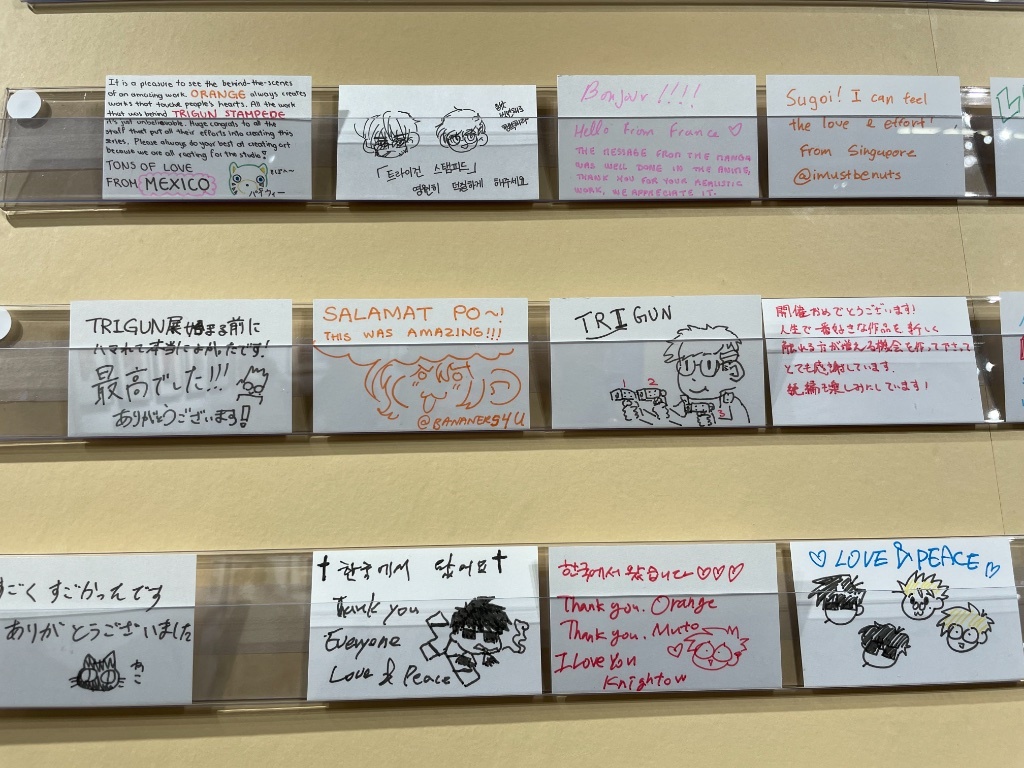 It is a pleasure to see the behind-the-scenes
of an amazing work. ORANGE always creates
works that touche people's hearts. All the work
that was behind TRIGUN STAMPEDE
it's just unbelievable. Huge congrats to all the
staff that put all their efforts into creating this
series. Please always do your best at creating art
because we are all rooting for the studio!
TONS OF LOVE
FROM MEXICO
「트라이건 스탬피드」
영원히 덕질하게 해주세요
Bonjour !!!!
Hello from France ♡
THE MESSAGE FROM THE MANGA
WAS WELL DONE IN THE ANIME,
THANK YOU FOR YOUR REALISTIC
WORK, WE APPRECIATE IT.
Sugoi! I can feel
the love & effort!
from Singapore
@imustbenuts
TRIGUN展始まる前に
ハマれて本当によかったです!
最高でした!!!
ありがとうございます!
SALAMAT PO~!
THIS WAS AMAZING!!!
@BANANERS4U
TRIGUN
1 2
3
開催おめでとうございます!
人生で一番好きな作品を新しく
触れる方が増える機会を作って下さって
とても感謝しています.
続編も楽しみにしています!
すごく すごかったです
ありがとうございました
ねこ
한국에서 왔어요
Thank you
Everyone
Love & Peace
한국에서 왔습니다 ♡♡♡
Thank you. Orange
Thank you. Muto
I Love You
Knightow
♡ LOVE & PEACE ♡